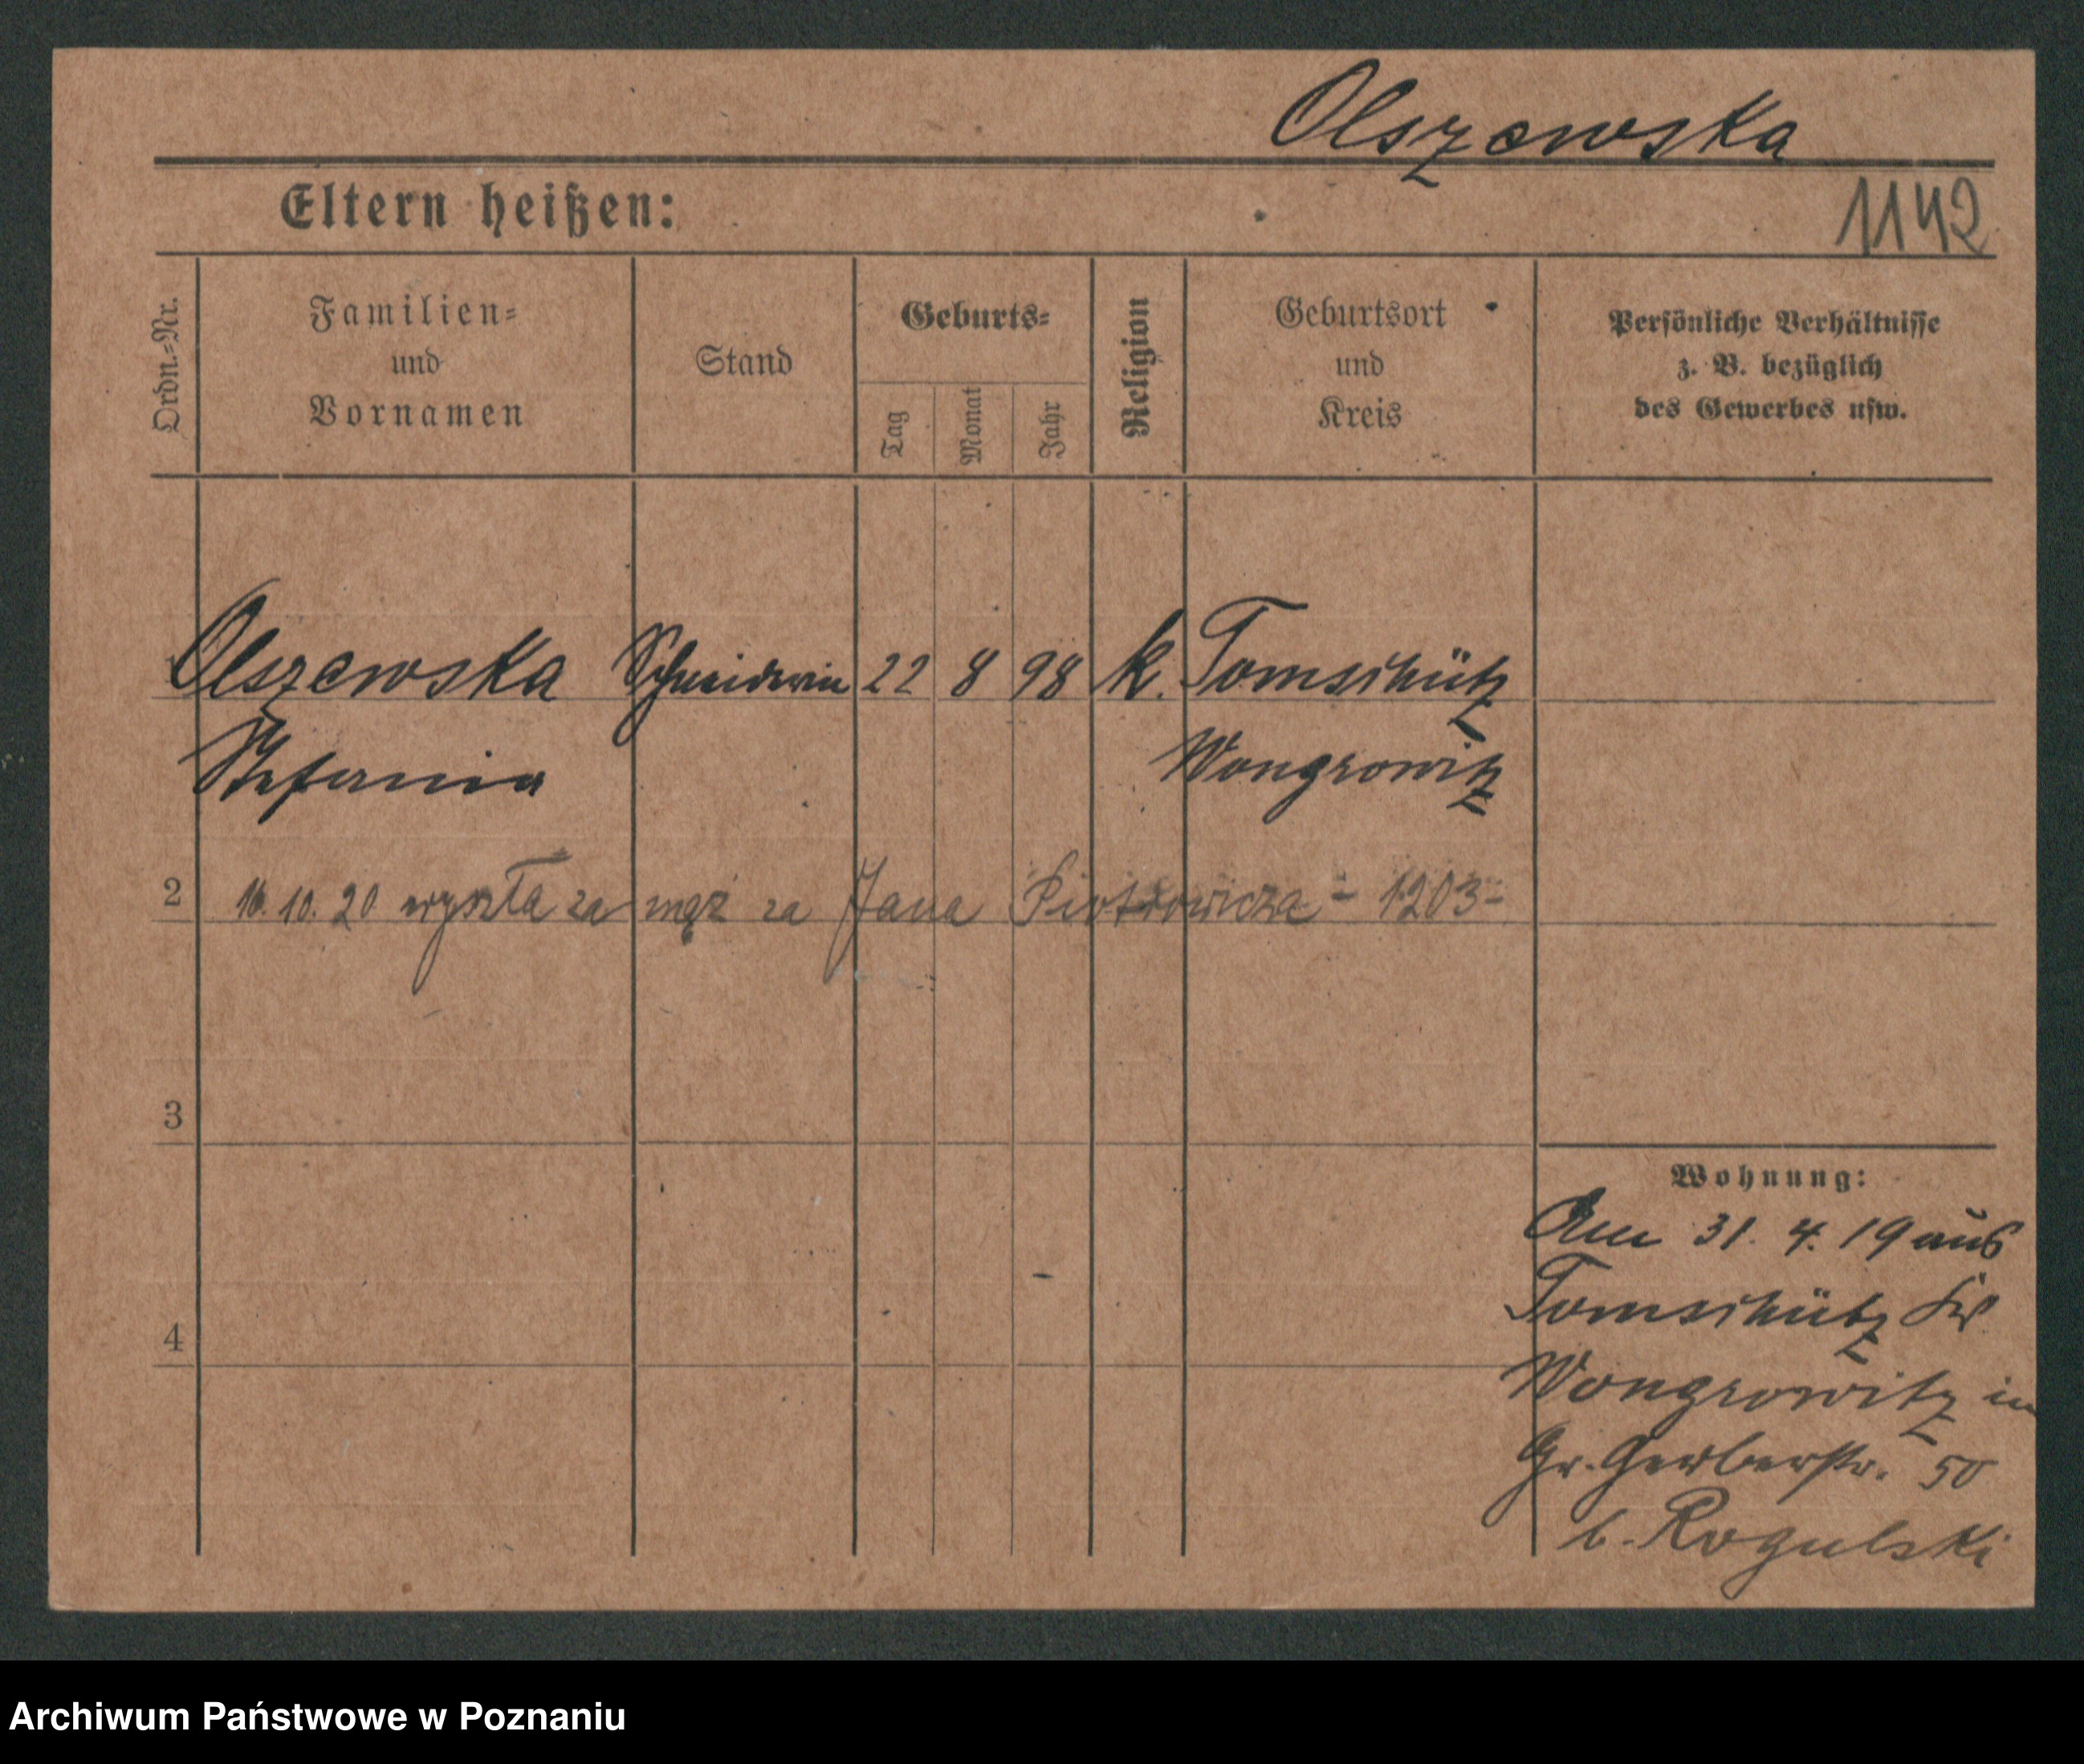 Olszewska
Eltern heißen:
1142
Ordn.-Nr.
Familien-
und
Vornamen
Stand
Geburts-
Tag
Monat
Jahr
Religion
Geburtsort
und
Kreis
Persönliche Verhältnisse
z. B. bezüglich
des Gewerbes usw.
Olszewska Schneiderin 22 8 98 k. Tomschütz
Stefania Wongrowitz
2 10. 20 wyszła za mąż za Jana Piotrowicza - 1203-
3
4
Wohnung:
Am 31. 4. 19 aus
Tomschütz
Wongrowitz in
Gr. Gerberstr. 50
b. Rogulski
Archiwum Państwowe w Poznaniu